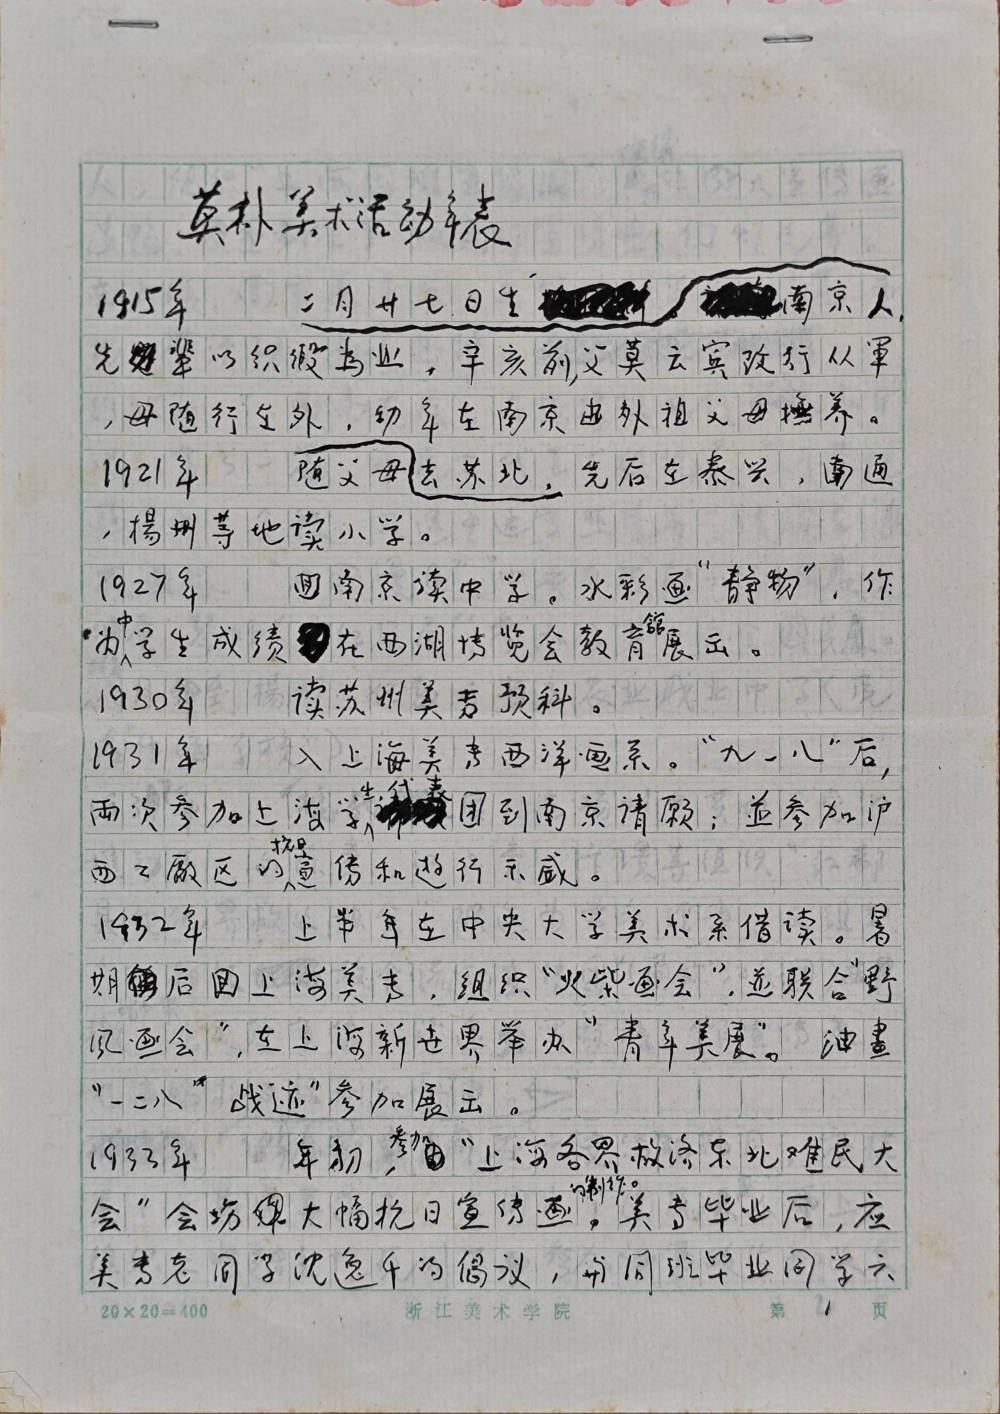 莫朴美术活动年表
1915年 二月廿七日生 南京人,
先輩以织缎为业,辛亥前,父莫云宾改行从軍
,母随行在外,幼年在南京由外祖父母撫养。
1921年 随父母去苏北,先后在泰兴,南通
,揚州等地读小学。
1927年 回南京读中学。水彩画“静物”,作
为中学生成绩在西湖博览会教育館展出。
1930年 读苏州美专预科。
1931年 入上海美专西洋画系。“九一八”后,
两次参加上海学生代表团到南京请愿;並参加沪
西工廠区的抗日宣传和遊行示威。
1932年 上半年在中央大学美术系借读。暑
期后回上海美专,组织“火柴画会”,並联合“野
风画会”,在上海新世界举办“青年美展”。油畫
“一二八”战迹”参加展出。
1933年 年初,参加“上海各界救济东北难民大
会”会场大幅抗日宣传画的制作。美专毕业后,应
美专老同学沈逸千的倡议,与同班毕业同学六
20×20=400 浙江美术学院 第1页